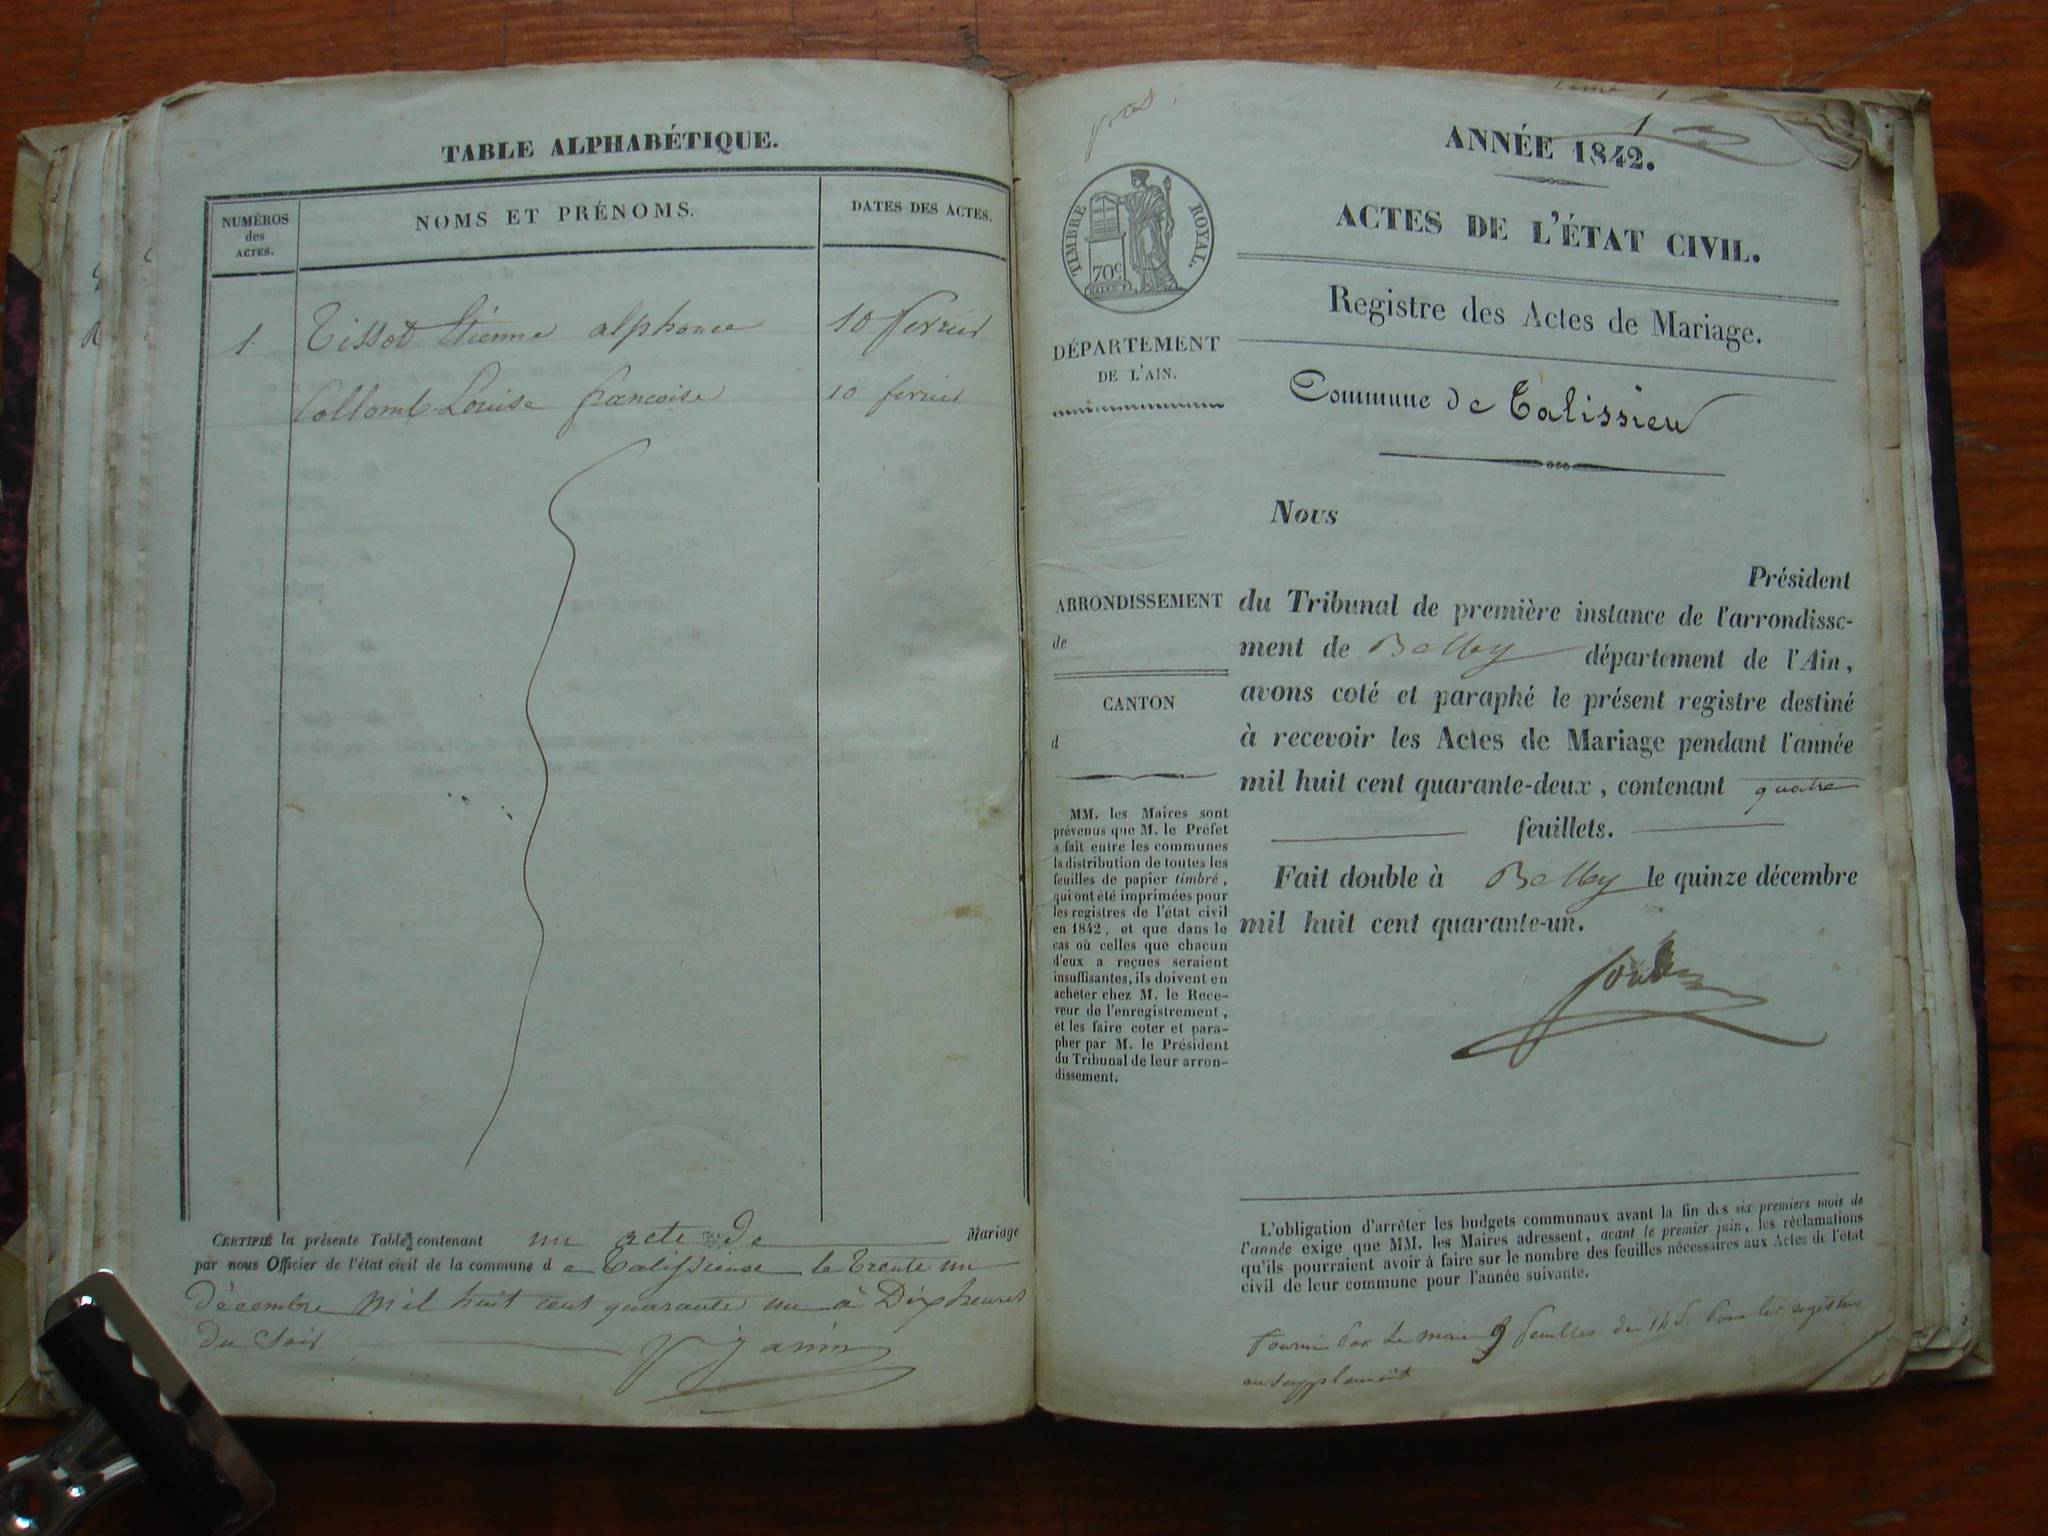 TABLE ALPHABÉTIQUE.
NUMÉROS
des
ACTES.
NOMS ET PRÉNOMS.
DATES DES ACTES.
1. Tissot Etienne alphonce 10 fevrier
Collomb Louise francoise 10 fevrier
CERTIFIÉ la présente Table contenant un acte de Mariage
par nous Officier de l'état civil de la commune d e Talissieux le Trente un
décembre mil huit cent quarante un à Dix heures
du Soir
Janin
ANNÉE 1842.
1
ACTES DE L'ÉTAT CIVIL.
TIMBRE ROYAL.
70c
Registre des Actes de Mariage.
DÉPARTEMENT
DE L'AIN.
Commune de Talissieu
Nous
Président
ARRONDISSEMENT
de
CANTON
d
du Tribunal de première instance de l'arrondisse-
ment de Belley département de l'Ain,
avons coté et paraphé le présent registre destiné
à recevoir les Actes de Mariage pendant l'année
mil huit cent quarante-deux, contenant quatre
feuillets.
Fait double à Belley le quinze décembre
mil huit cent quarante-un.
MM. les Maires sont
prévenus que M. le Préfet
a fait entre les communes
la distribution de toutes les
feuilles de papier timbré,
qui ont été imprimées pour
les registres de l'état civil
en 1842, et que dans le
cas où celles que chacun
d'eux a reçues seraient
insuffisantes, ils doivent en
acheter chez M. le Rece-
veur de l'enregistrement,
et les faire coter et para-
pher par M. le Président
du Tribunal de leur arron-
dissement.
L'obligation d'arrêter les budgets communaux avant la fin des six premiers mois de
l'année exige que MM. les Maires adressent, avant le premier juin, les réclamations
qu'ils pourraient avoir à faire sur le nombre des feuilles nécessaires aux Actes de l'état
civil de leur commune pour l'année suivante.
Fourni par Le maire 9 feuilles de Pour les registres
au supplement